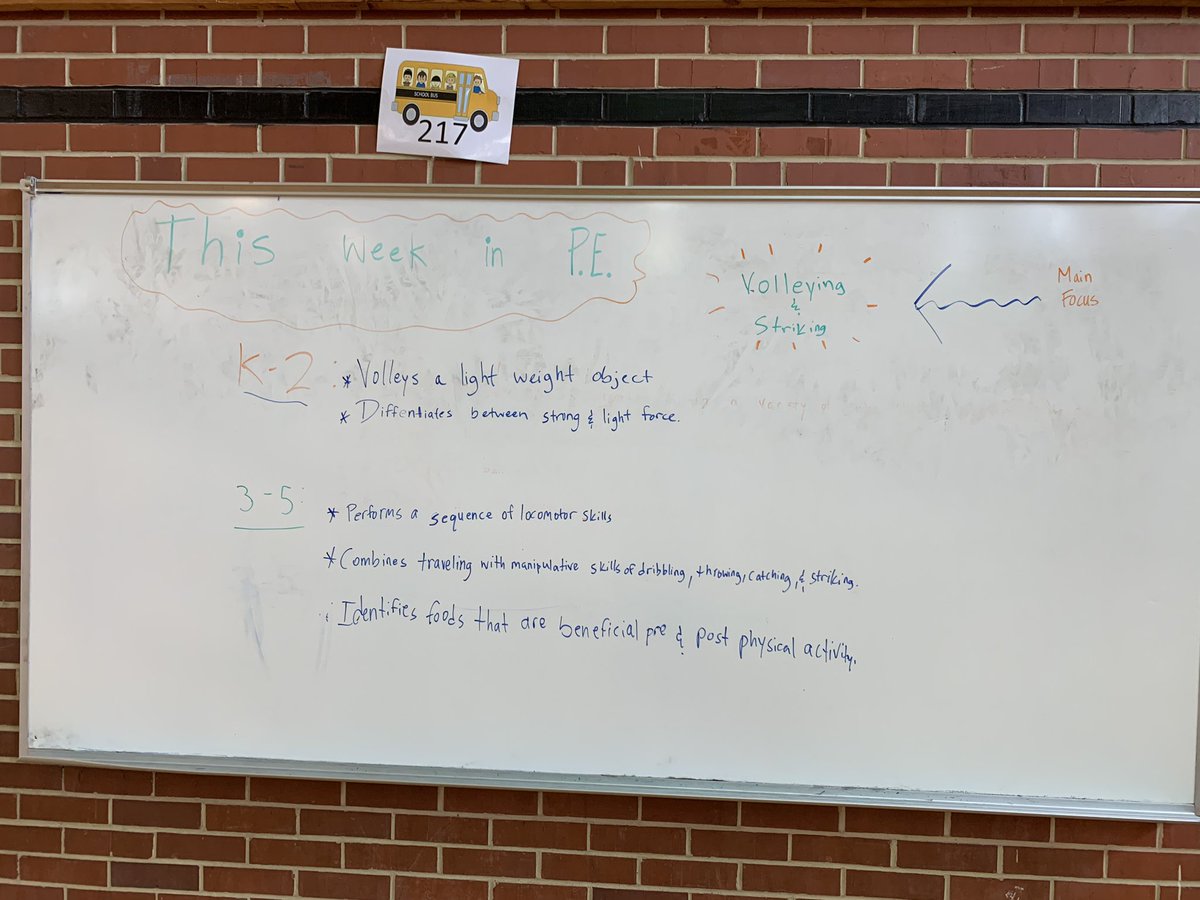 SCHOOL BUS
217
This week in P.E.
Volleying
&
Striking
Main
Focus
K-2:
* Volleys a light weight object
* Diffentiates between strong & light force.
variety of
3-5:
* Performs a sequence of locomotor skills
* Combines traveling with manipulative skills of dribbling, throwing, catching, & striking.
Identifies foods that are beneficial pre & post physical activity.